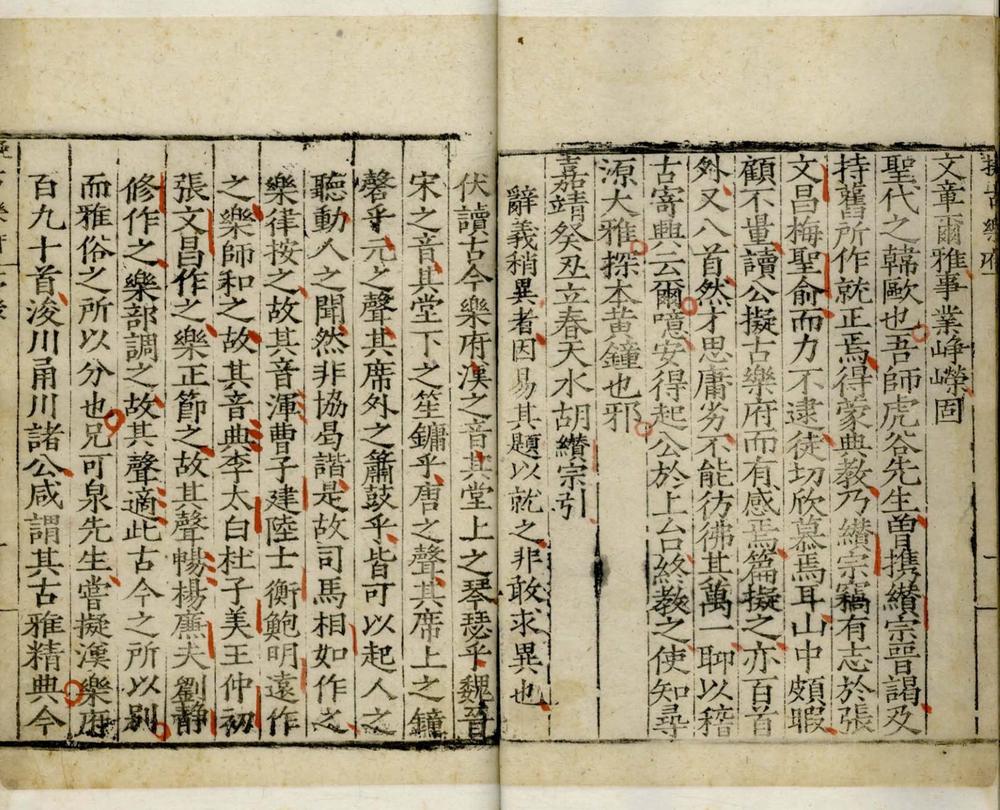 擬古樂府
文章爾雅事業崢嶸固
聖代之韓歐也吾師虎谷先生曾攜纘宗晉謁及
持舊所作就正焉得蒙典教乃纘宗竊有志於張
文昌梅聖俞而力不逮徒切欣慕焉耳山中頗暇
顧不量讀公擬古樂府而有感焉篇擬之亦百首
外又八首然才思庸劣不能彷彿其萬一聊以稽
古寄興云爾噫安得起公於上台終教之使知尋
源大雅探本黃鐘也邪
嘉靖癸丑立春天水胡纘宗引
辭義稍異者因易其題以就之非敢求異也
伏讀古今樂府漢之音其堂上之琴瑟乎魏晉
宋之音其堂下之笙鏞乎唐之聲其席上之鐘
磬乎元之聲其席外之簫鼓乎皆可以起人之
聽動人之聞然非協曷諧是故司馬相如作之
樂律按之故其音渾曹子建陸士衡鮑明遠作
之樂師和之故其音典李太白杜子美王仲初
張文昌作之樂正節之故其聲暢楊廉夫劉靜
修作之樂部調之故其聲適此古今之所以別
而雅俗之所以分也兄可泉先生嘗擬漢樂府
百九十首浚川甬川諸公咸謂其古雅精典今